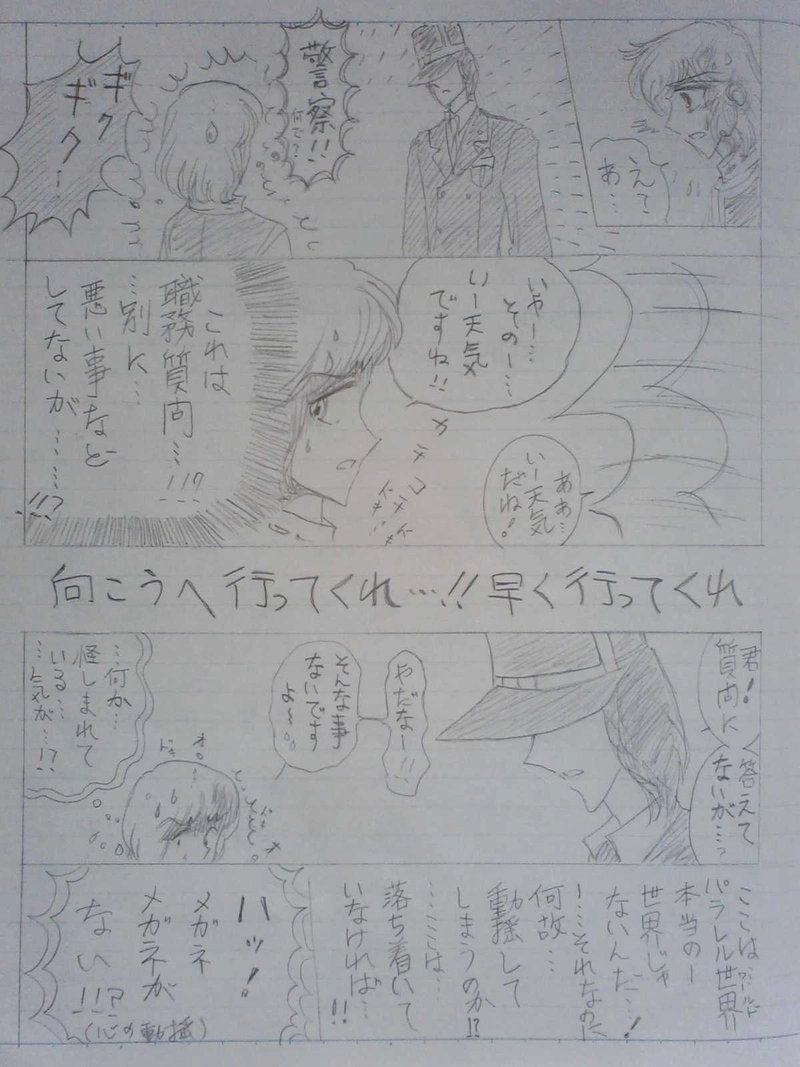 えっ
あ…
警察!!
何で?
ギク
ギク…
いやー…
そのー…
いー天気
ですね!!
ああ…
いー天気
だね!
メラ
メラ
イライラ
これは
職務質問…!!?
…別に…
悪い事など
してないが……!!?
向こうへ行ってくれ…!!早く行ってくれ
君!
質問に
答えて
ないが…っ
やだなー!!
そんな事
ないです
よ~。
オロ
ドキ
ドキ
…何か…
怪しまれて
いる…
…気が…!?
ここは
パラレル世界
ワールド
本当のー
世界じゃ
ないんだ…!
!…それなのに
何故…
動揺して
しまうのか!?
…ここは…
落ち着いて
いなければ…!!
ハッ!
メガネ
メガネが
ない!!?
(心の動揺)